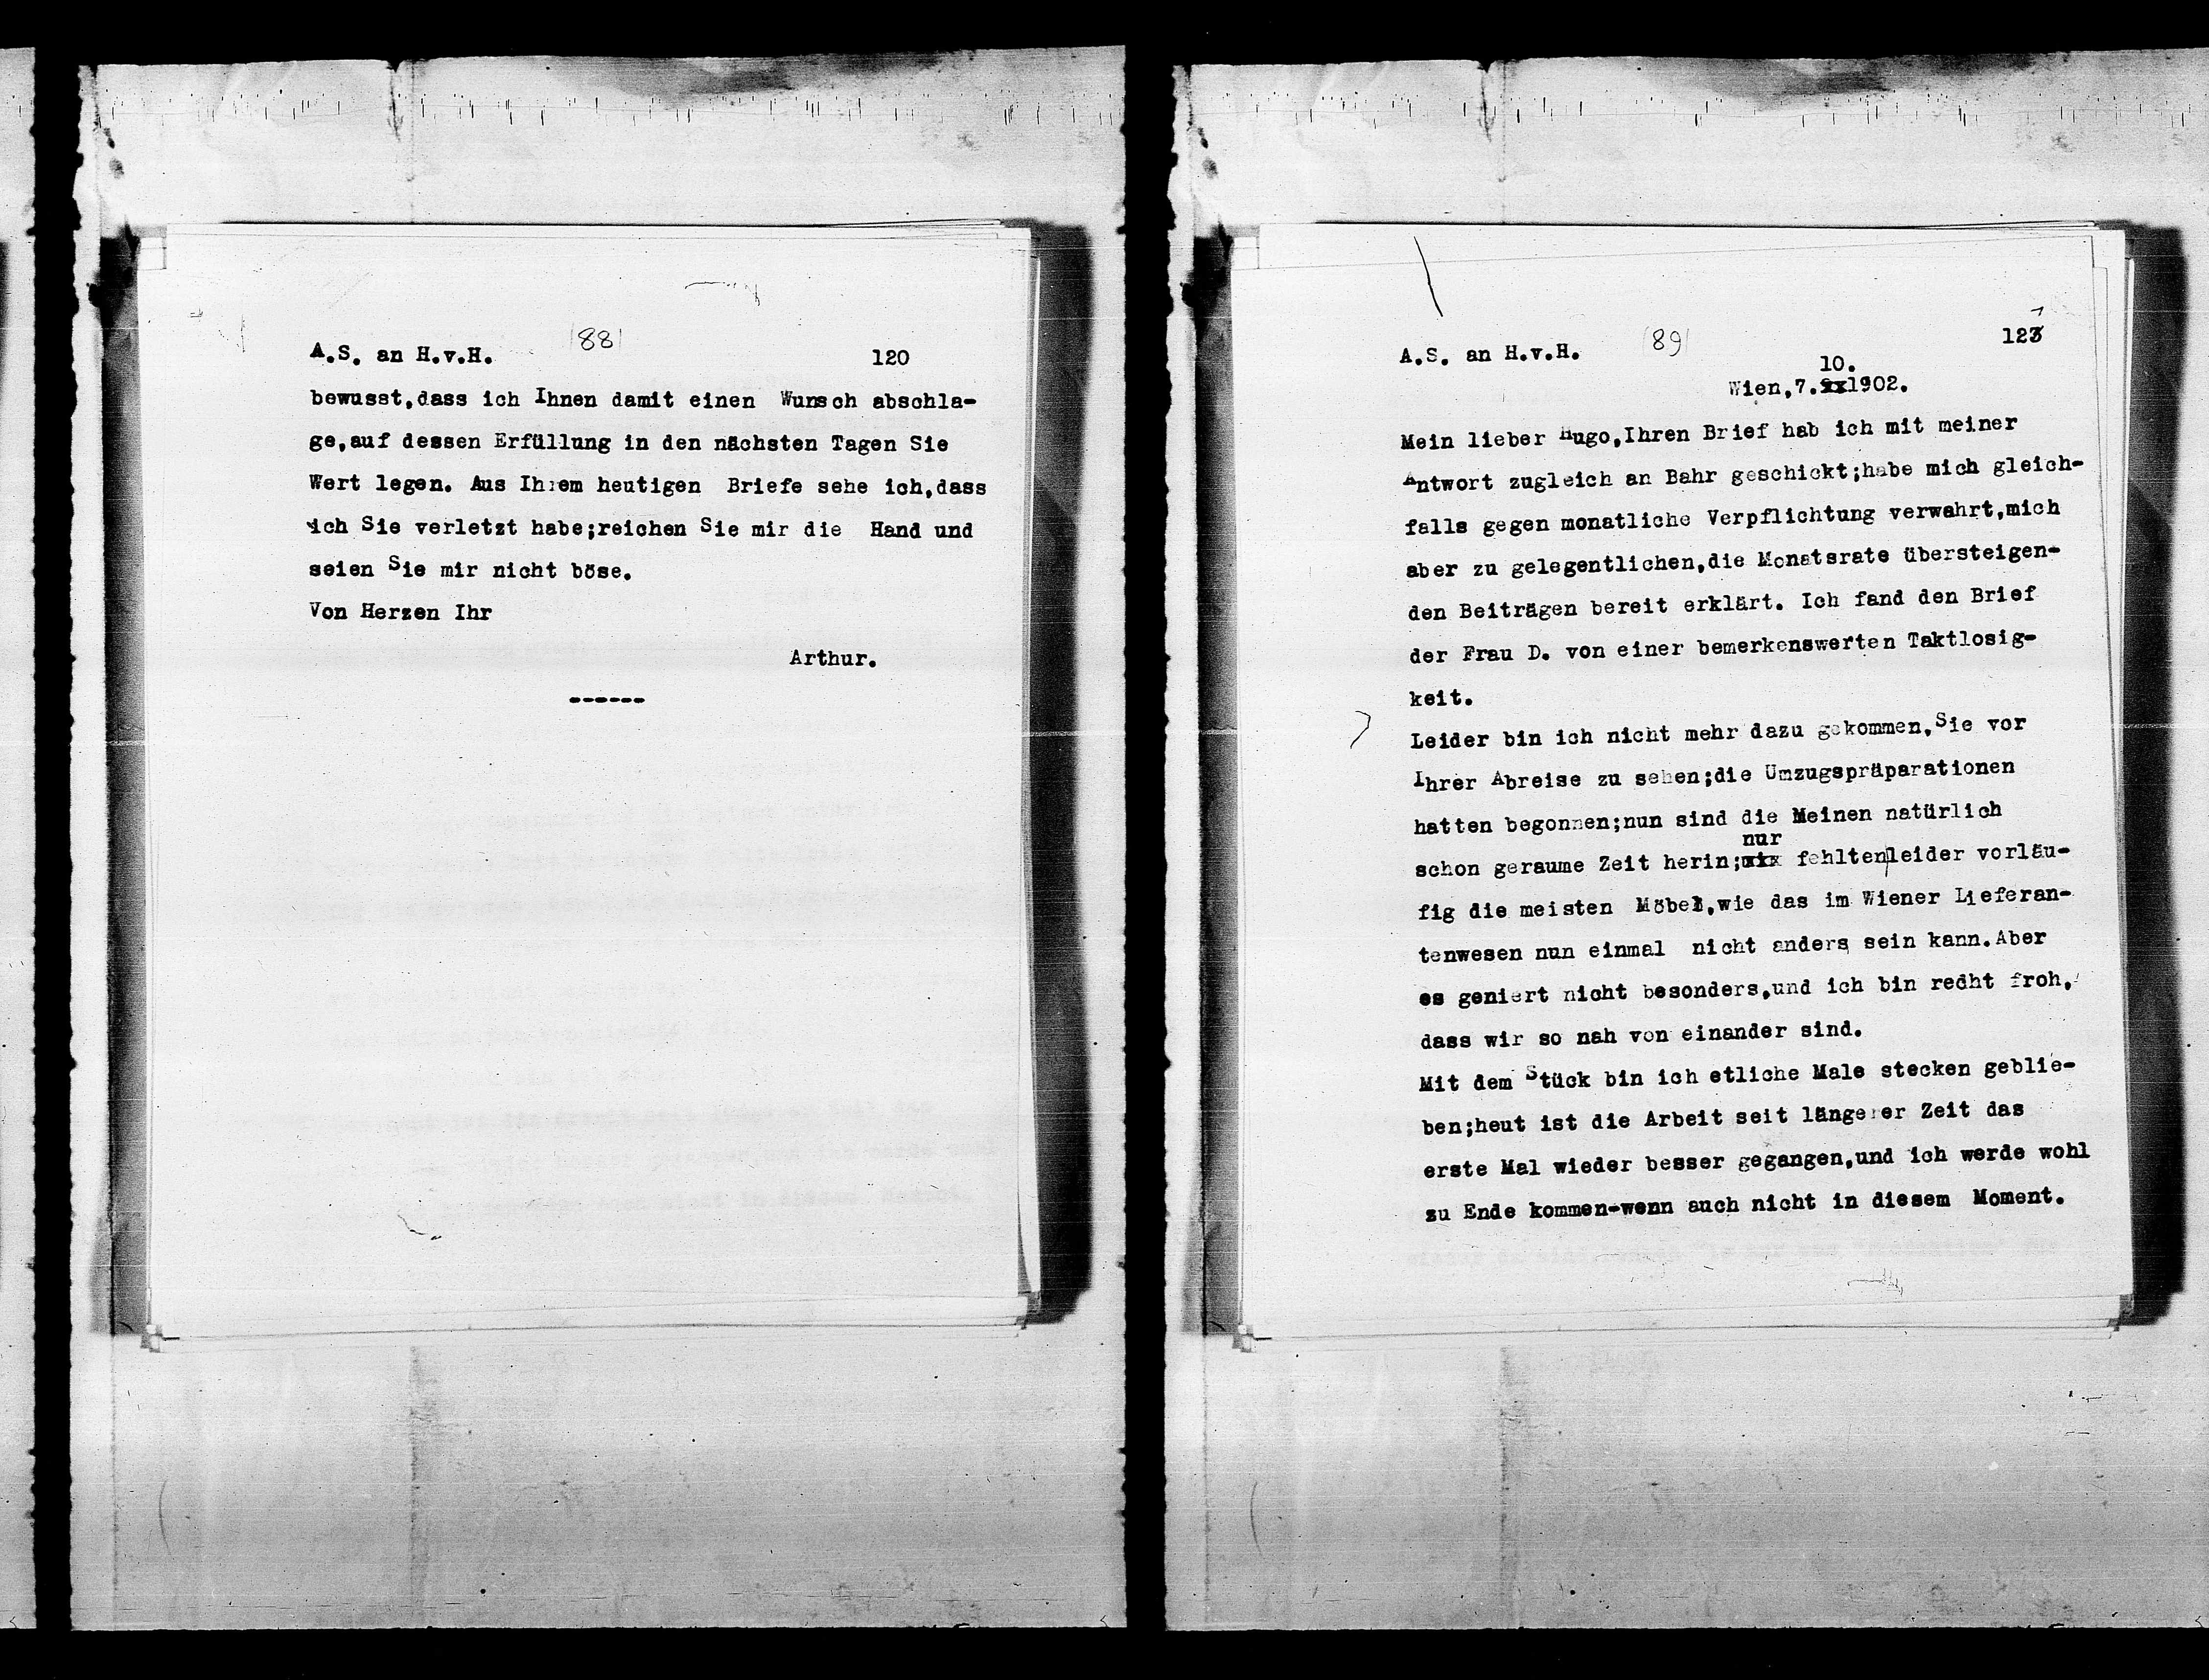 A.S. an H.v.H.
(88)
120
bewusst,dass ich Ihnen damit einen Wunsch abschla-
ge,auf dessen Erfüllung in den nächsten Tagen Sie
Wert legen. Aus Ihrem heutigen Briefe sehe ich,dass
ich Sie verletzt habe;reichen Sie mir die Hand und
seien Sie mir nicht böse.
Von Herzen Ihr
Arthur.
------
A.S. an H.v.H.
(89)
123
10.
Wien,7.9x1902.
Mein lieber Hugo,Ihren Brief hab ich mit meiner
Antwort zugleich an Bahr geschickt;habe mich gleich-
falls gegen monatliche Verpflichtung verwahrt,mich
aber zu gelegentlichen,die Monatsrate übersteigen-
den Beiträgen bereit erklärt. Ich fand den Brief
der Frau D. von einer bemerkenswerten Taktlosig-
keit.
Leider bin ich nicht mehr dazu gekommen,Sie vor
Ihrer Abreise zu sehen;die Umzugspräparationen
hatten begonnen;nun sind die Meinen natürlich
nur
schon geraume Zeit herin; fehlten leider vorläu-
fig die meisten Möbel,wie das im Wiener Lieferan-
tenwesen nun einmal nicht anders sein kann.Aber
es geniert nicht besonders,und ich bin redht froh,
dass wir so nah von einander sind.
Mit dem Stück bin ich etliche Male stecken geblie-
ben;heut ist die Arbeit seit längerer Zeit das
erste Mal wieder besser gegangen,und ich werde wohl
zu Ende kommen-wenn auch nicht in diesem Moment.